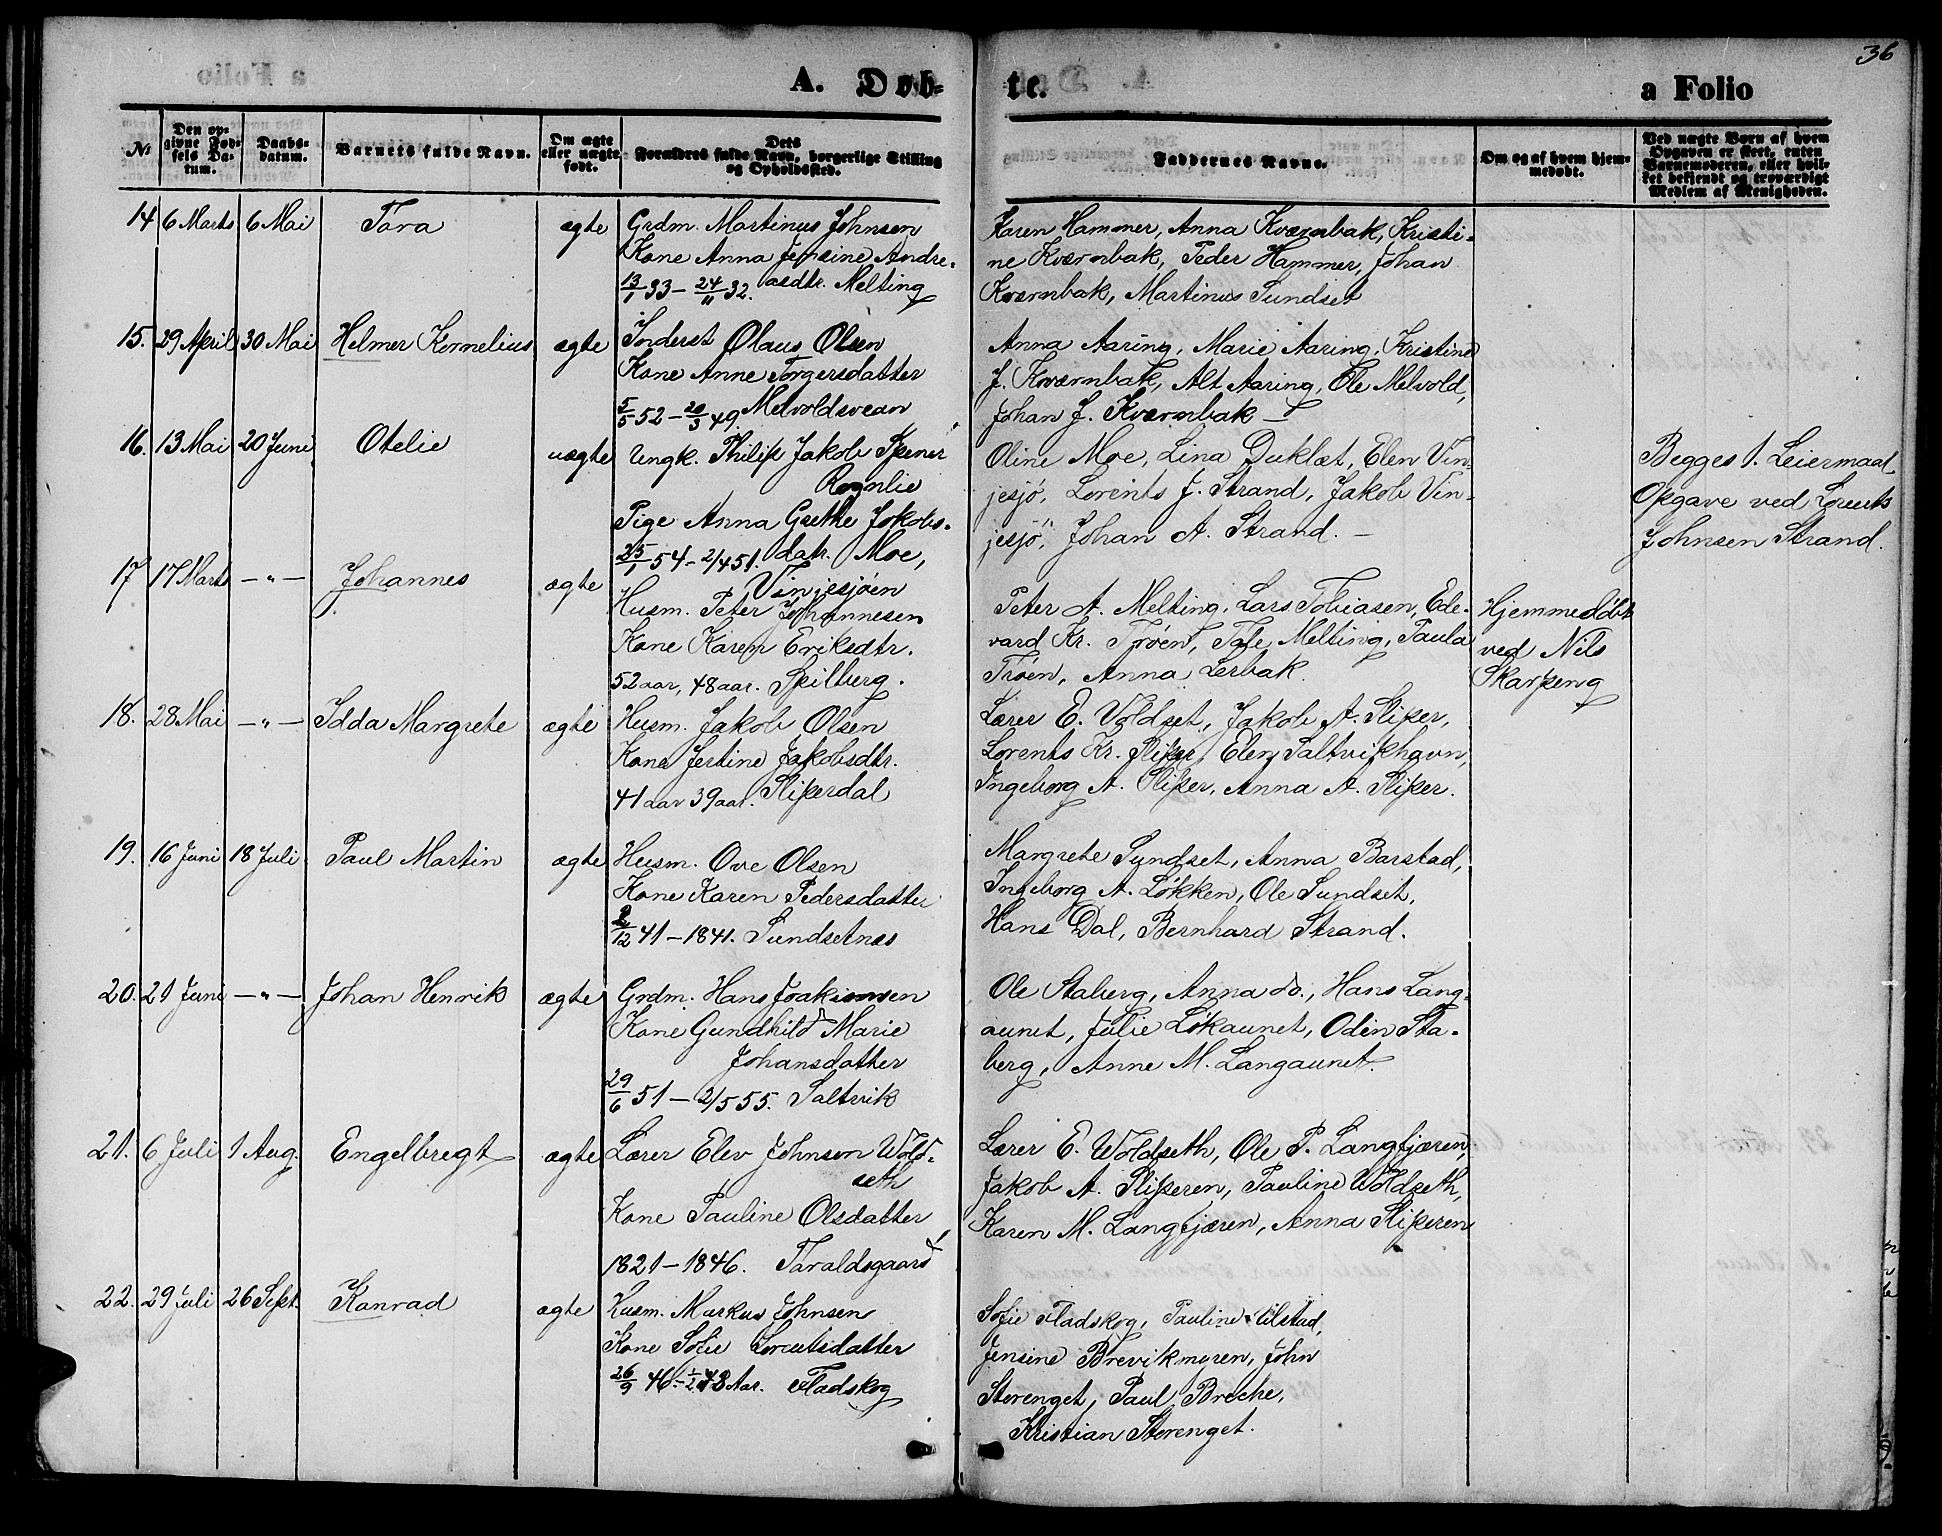 36
A. Døb-
te.
a Folio
№
Den op-
givne Fød-
sels Da-
tum.
Daabs-
datum.
Barnets fulde Navn.
Om ægte
eller uægte
født.
Dets
Forældres fulde Navn, borgerlige Stilling
og Opholdssted.
Faddernes Navne.
Om og af hvem hjem-
medøbt.
Ved uægte Børn af hvem
Opgaven er skeet, enten
Barnemoderen, eller hvil-
ket bekjendt og troværdigt
Medlem af Menigheden.
14 6 Marts 6 Mai Tora ægte Grdm. Martinus Johnsen
Kone Anna Jensine Andre-
asdtr. Melting
13/1 33 – 24/11 32.
Karen Hammer, Anna Kværnbak, Kristi-
ne Kværnbak, Peder Hammer, Johan
Kværnbak, Martinus Sundset
15. 29 April 30 Mai Helmer Kornelius ægte Inderst Olaus Olsen
Kone Anne Torgersdatter
5/5 52 – 20/3 49. Melvoldsvean
Anna Aaring, Marie Aaring, Kristine
J. Kværnbak, Alt Aaring, Ole Melvold,
Johan J. Kværnbak –
16. 13 Mai 20 Juni Otelie uægte Ungk. Philip Jakob
Rognlie
Pige Anna Grethe Jakobs-
25/1 54 – 2/4 51. datr. Moe,
Vinjesjøen
Oline Moe, Lina Duklæt, Elen Vin-
jesjö, Lorents J. Strand, Jakob Vin-
jesjö, Johan A. Strand. –
Begges 1. Leiermaal
Opgave ved Lorents
Johnsen Strand.
17 17 Marts –"– Johannes ægte Husm. Peter Johannesen
Kone Karen Eriksdtr.
52 aar, 48 aar. Spilberg.
Peter A. Melting, Lars Tobiasen, Ede-
vard Kr. Trøen, Tale Melting, Paula
Trøen, Anna Lerbak.
Hjemmedöbt
ved Nils
Skarpeng
18. 28 Mai –"– Idda Margrete ægte Husm. Jakob Olsen
Kone Jestine Jakobsdtr.
41 aar 39 aar. Sliperdal
Lærer E. Voldset, Jakob A. Sliper,
Lorents Kr. Sliper, Elen Saltvikhavn,
Ingeborg A. Sliper, Anna A. Sliper.
19. 16 Juni 18 Juli Paul Martin ægte Husm. Ove Olsen
Kone Karen Pedersdatter
2/12 41 – 1841. Sundsetnæs
Margrete Sundset, Anna Barstad,
Ingeborg A. Løkken, Ole Sundset,
Hans Dal, Bernhard Strand.
20. 21 Juni –"– Johan Henrik ægte Grdm. Hans Joakimsen
Kone Gundhild Marie
Johansdatter
29/6 51 – 2/5 55. Saltvik
Ole Staberg, Anna do., Hans Lang-
aunet, Julie Løkaunet, Odin Sta-
berg, Anne M. Langaunet.
21. 6 Juli 1 Aug. Engelbregt ægte Lærer Elev Johnsen Wold-
seth
Kone Pauline Olsdatter
1821 – 1846. Taraldsgaard
Lærer E. Woldseth, Ole P. Langfjæren,
Jakob A. Sliperen, Pauline Woldseth,
Karen M. Langfjæren, Anna Sliperen
22. 29 Juli 26 Sept. Konrad ægte Husm. Markus Johnsen
Kone Sofie Lorentsdatter
26/9 46 – Aar. Fladskog
Sofie Fladskog, Pauline Ulstad,
Jensine Brevikmyren, John
Storenget, Paul Breche,
Kristian Storenget.